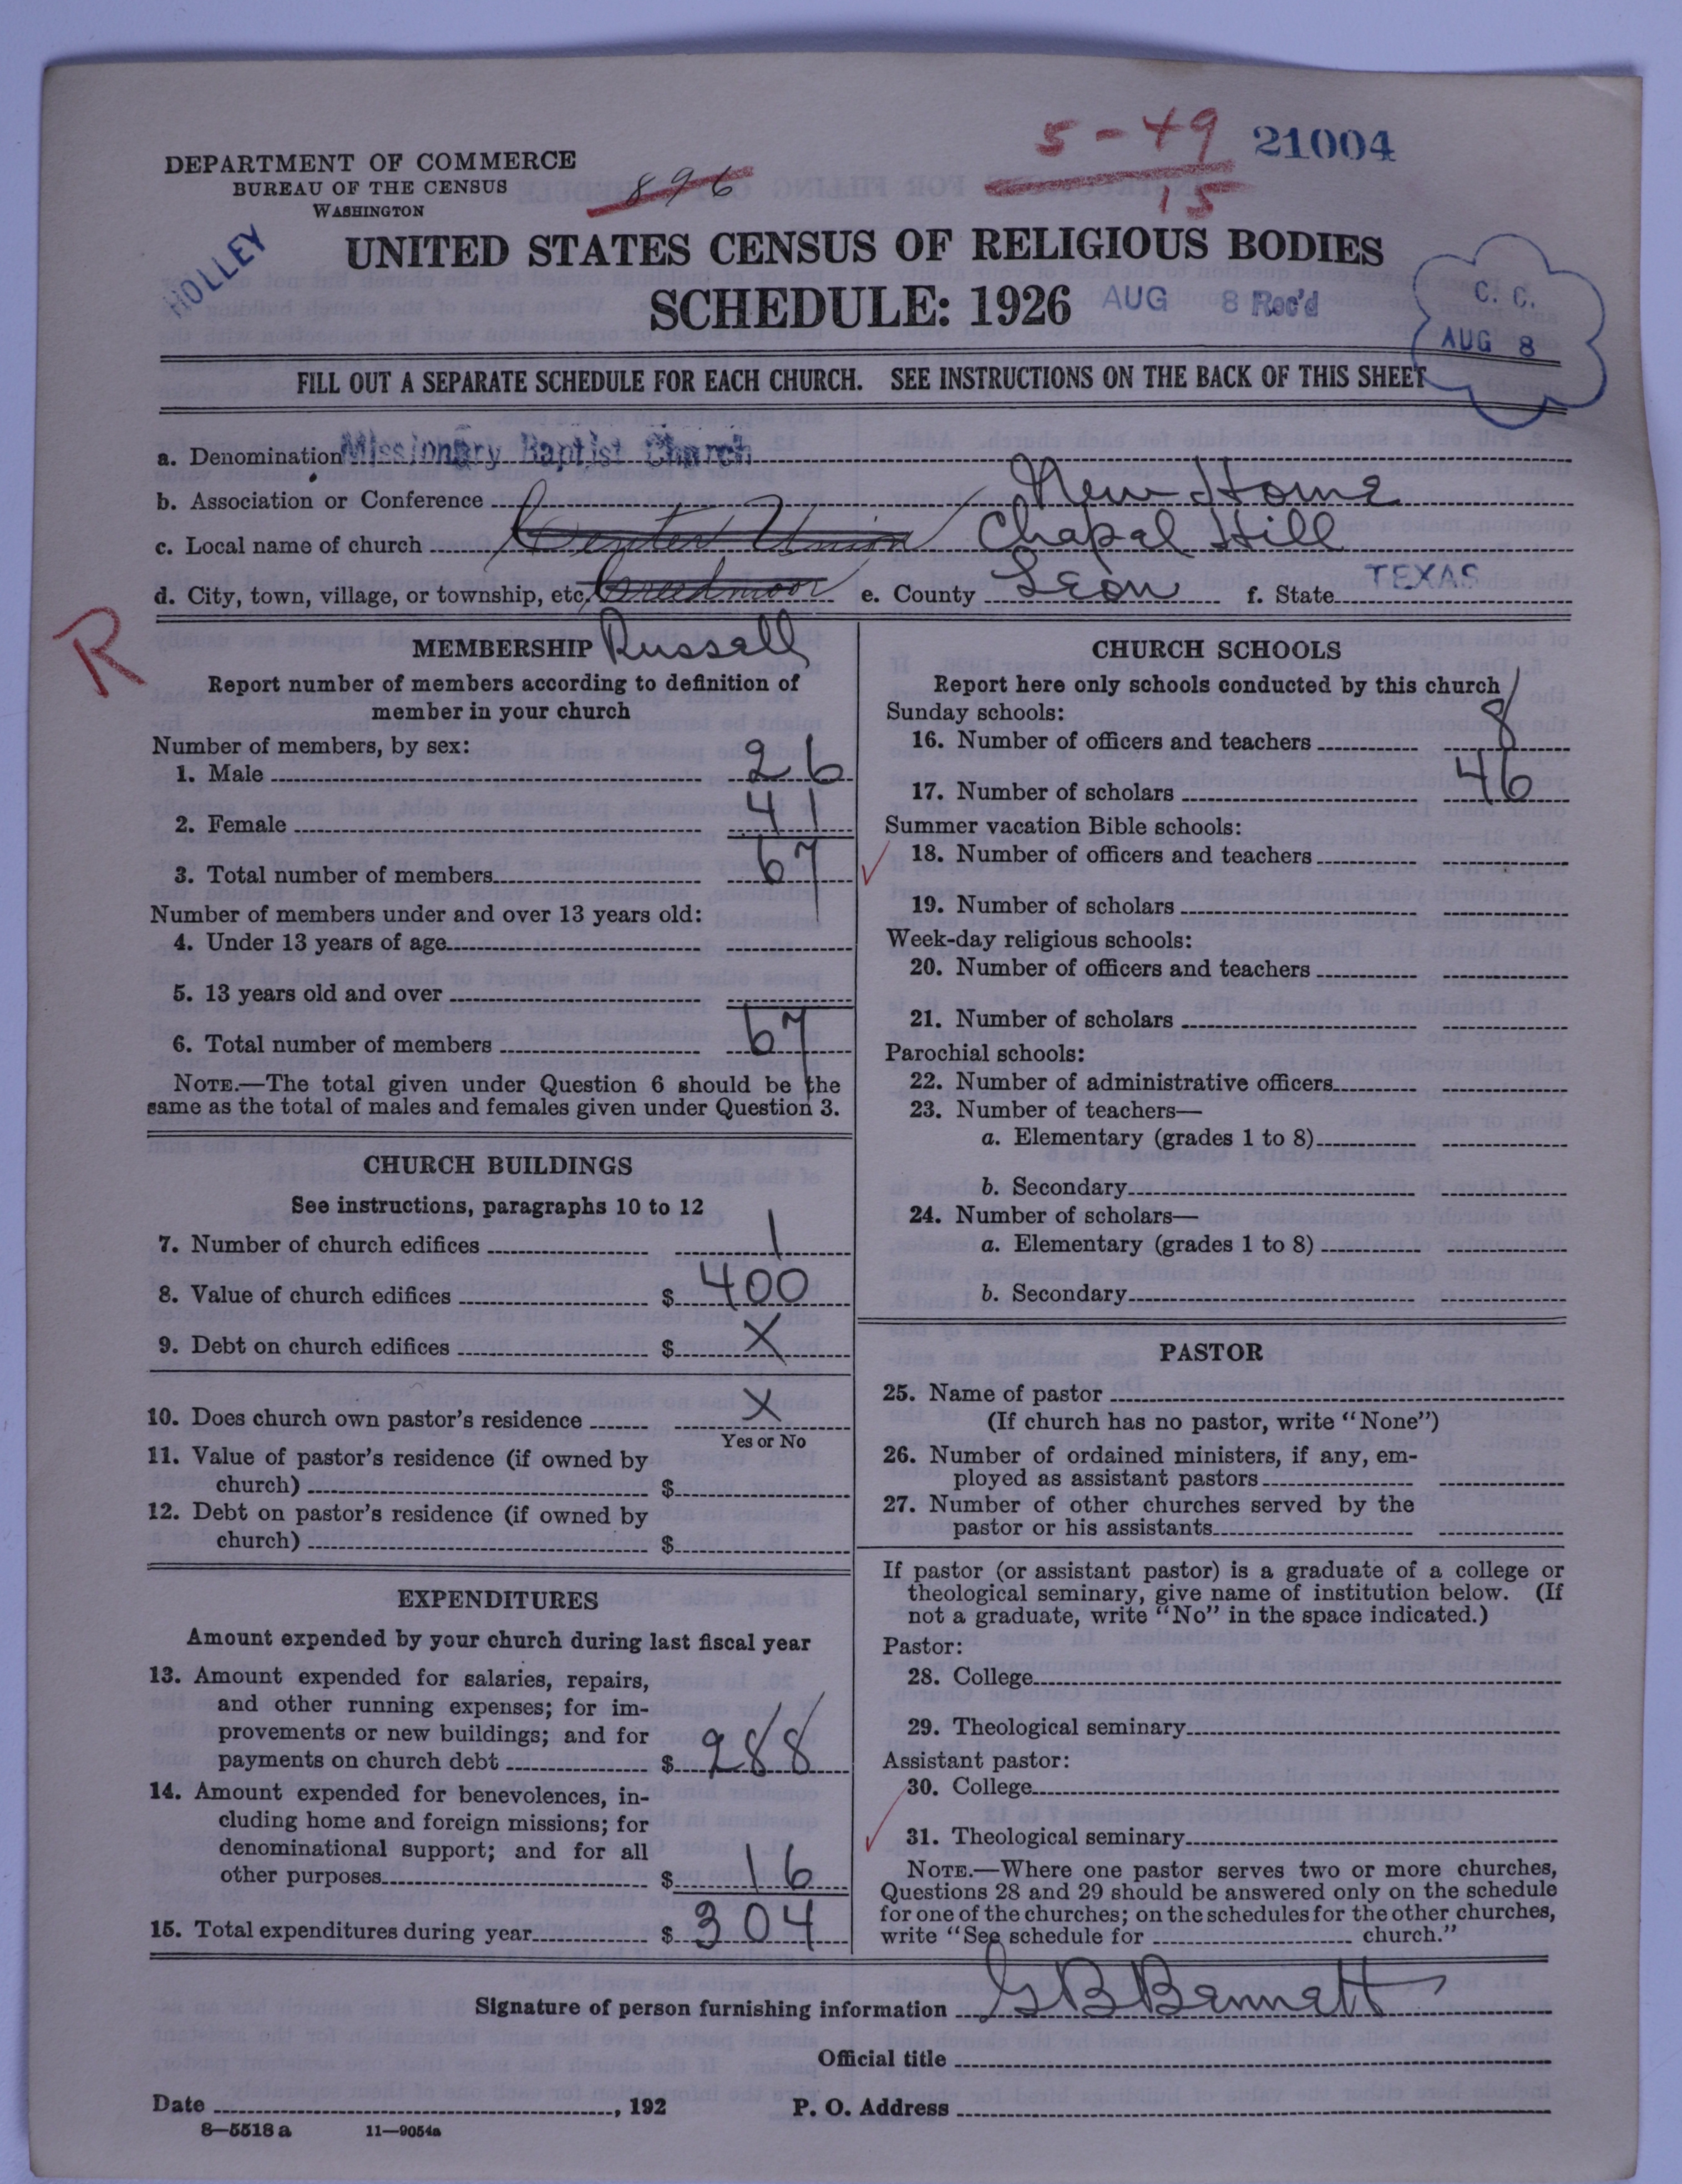 5-49
15
21004
DEPARTMENT OF COMMERCE
BUREAU OF THE CENSUS
WASHINGTON
896
HOLLEY
UNITED STATES CENSUS OF RELIGIOUS BODIES
SCHEDULE: 1926
AUG 8 Rec'd
C. C.
AUG 8
FILL OUT A SEPARATE SCHEDULE FOR EACH CHURCH. SEE INSTRUCTIONS ON THE BACK OF THIS SHEET
a. Denomination Missionary Baptist Church
b. Association or Conference New Home
c. Local name of church Center Union Chapal Hill
d. City, town, village, or township, etc. Creedmoor e. County Leon f. State TEXAS
R
MEMBERSHIP Russell
Report number of members according to definition of
member in your church
Number of members, by sex:
1. Male 26
2. Female 41
3. Total number of members 67
Number of members under and over 13 years old:
4. Under 13 years of age
5. 13 years old and over
6. Total number of members 67
NOTE.—The total given under Question 6 should be the
same as the total of males and females given under Question 3.
CHURCH BUILDINGS
See instructions, paragraphs 10 to 12
7. Number of church edifices 1
8. Value of church edifices $ 400
9. Debt on church edifices $ X
10. Does church own pastor's residence X
Yes or No
11. Value of pastor's residence (if owned by
church) $
12. Debt on pastor's residence (if owned by
church) $
EXPENDITURES
Amount expended by your church during last fiscal year
13. Amount expended for salaries, repairs,
and other running expenses; for im-
provements or new buildings; and for
payments on church debt $ 288
14. Amount expended for benevolences, in-
cluding home and foreign missions; for
denominational support; and for all
other purposes $ 16
15. Total expenditures during year $ 304
CHURCH SCHOOLS
Report here only schools conducted by this church
Sunday schools:
16. Number of officers and teachers 8
17. Number of scholars 46
Summer vacation Bible schools:
18. Number of officers and teachers
19. Number of scholars
Week-day religious schools:
20. Number of officers and teachers
21. Number of scholars
Parochial schools:
22. Number of administrative officers
23. Number of teachers—
a. Elementary (grades 1 to 8)
b. Secondary
24. Number of scholars—
a. Elementary (grades 1 to 8)
b. Secondary
PASTOR
25. Name of pastor
(If church has no pastor, write "None")
26. Number of ordained ministers, if any, em-
ployed as assistant pastors
27. Number of other churches served by the
pastor or his assistants
If pastor (or assistant pastor) is a graduate of a college or
theological seminary, give name of institution below. (If
not a graduate, write "No" in the space indicated.)
Pastor:
28. College
29. Theological seminary
Assistant pastor:
30. College
31. Theological seminary
NOTE.—Where one pastor serves two or more churches,
Questions 28 and 29 should be answered only on the schedule
for one of the churches; on the schedules for the other churches,
write "See schedule for church."
Signature of person furnishing information G B Bennett
Official title
Date , 192 P. O. Address
8—5518 a 11—9054a